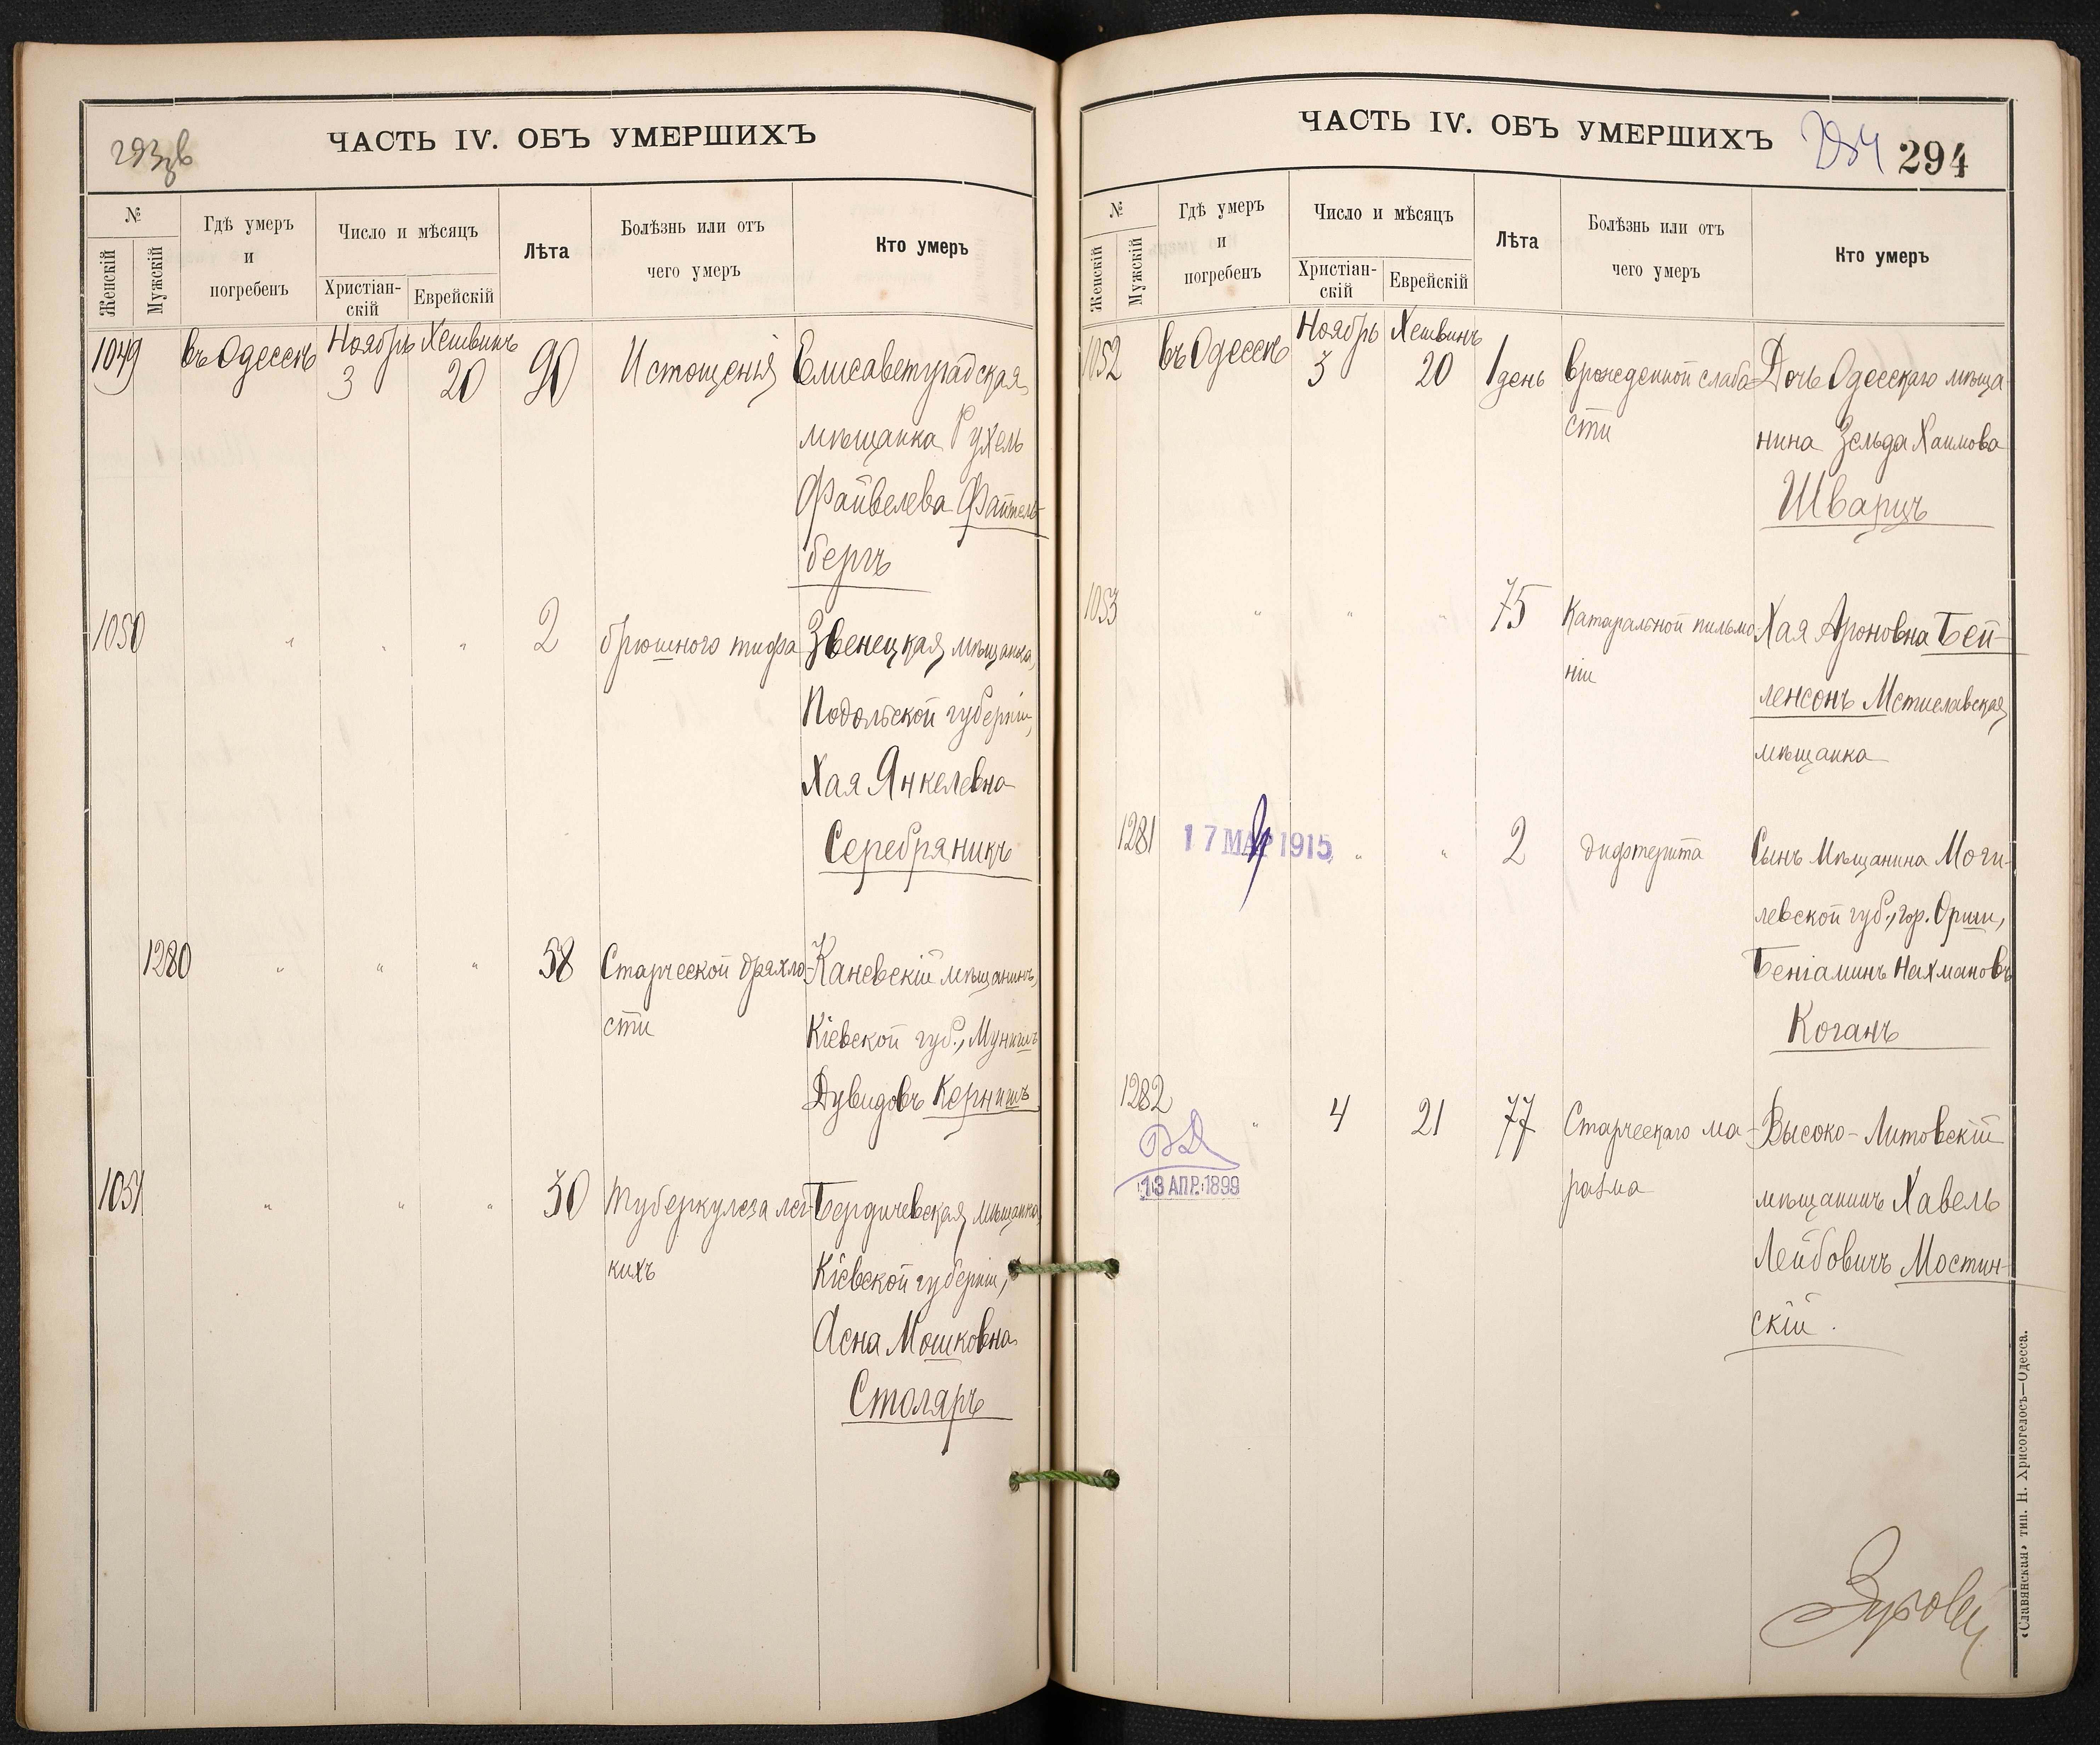 293об
ЧАСТЬ IV. ОБЪ УМЕРШИХЪ
№
Женскій
Мужскій
Гдѣ умеръ
и
погребенъ
Число и мѣсяцъ
Христіан-
скій
Еврейскій
Лѣта
Болѣзнь или отъ
чего умеръ
Кто умеръ
1049 въ Одессѣ Ноябрь 3 Хешвинъ 20 90 Истощенія Елисаветградская
мѣщанка Рухель
Файвелева Файтель-
бергъ
1050 " " " 2 брюшного тифа Звенецкая мѣщанка,
Подольской губерніи,
Хая Янкелевна
Серебряникъ
1280 " " " 58 Старческой дряхло- Каневскій мѣщанинъ,
сти Кіевской губ., Мунишъ
Дувидовъ Кернишъ
1051 " " " 50 Туберкулеза лег- Бердичевская мѣщанка,
кихъ Кіевской губерніи,
Асна Мошковна
Столяръ
ЧАСТЬ IV. ОБЪ УМЕРШИХЪ
294 294
№
Женскій
Мужскій
Гдѣ умеръ
и
погребенъ
Число и мѣсяцъ
Христіан-
скій
Еврейскій
Лѣта
Болѣзнь или отъ
чего умеръ
Кто умеръ
1052 въ Одессѣ Ноябрь 3 Хешвинъ 20 1 день врожденной слабо Дочь Одесскаго мѣща-
сти нина Зельда Хаимова
Шварцъ
1053 " " " 75 Катаральной пнеймо- Хая Ароновна Бей-
ніи ленсонъ Мстиславская
мѣщанка
1281 17 МАР 1915 " " 2 дифтерита Сынъ Мѣщанина Моги-
левской губ., гор. Орши,
Беніаминъ Нахмановъ
Коганъ
1282 " 4 21 77 Старческаго ма- Высоко-Литовскій
13 АПР. 1899 разма мѣщанинъ Хавель
Лейбовичъ Мостин-
скій.
«Славянская» тип. Н. Хрисогелосъ—Одесса.